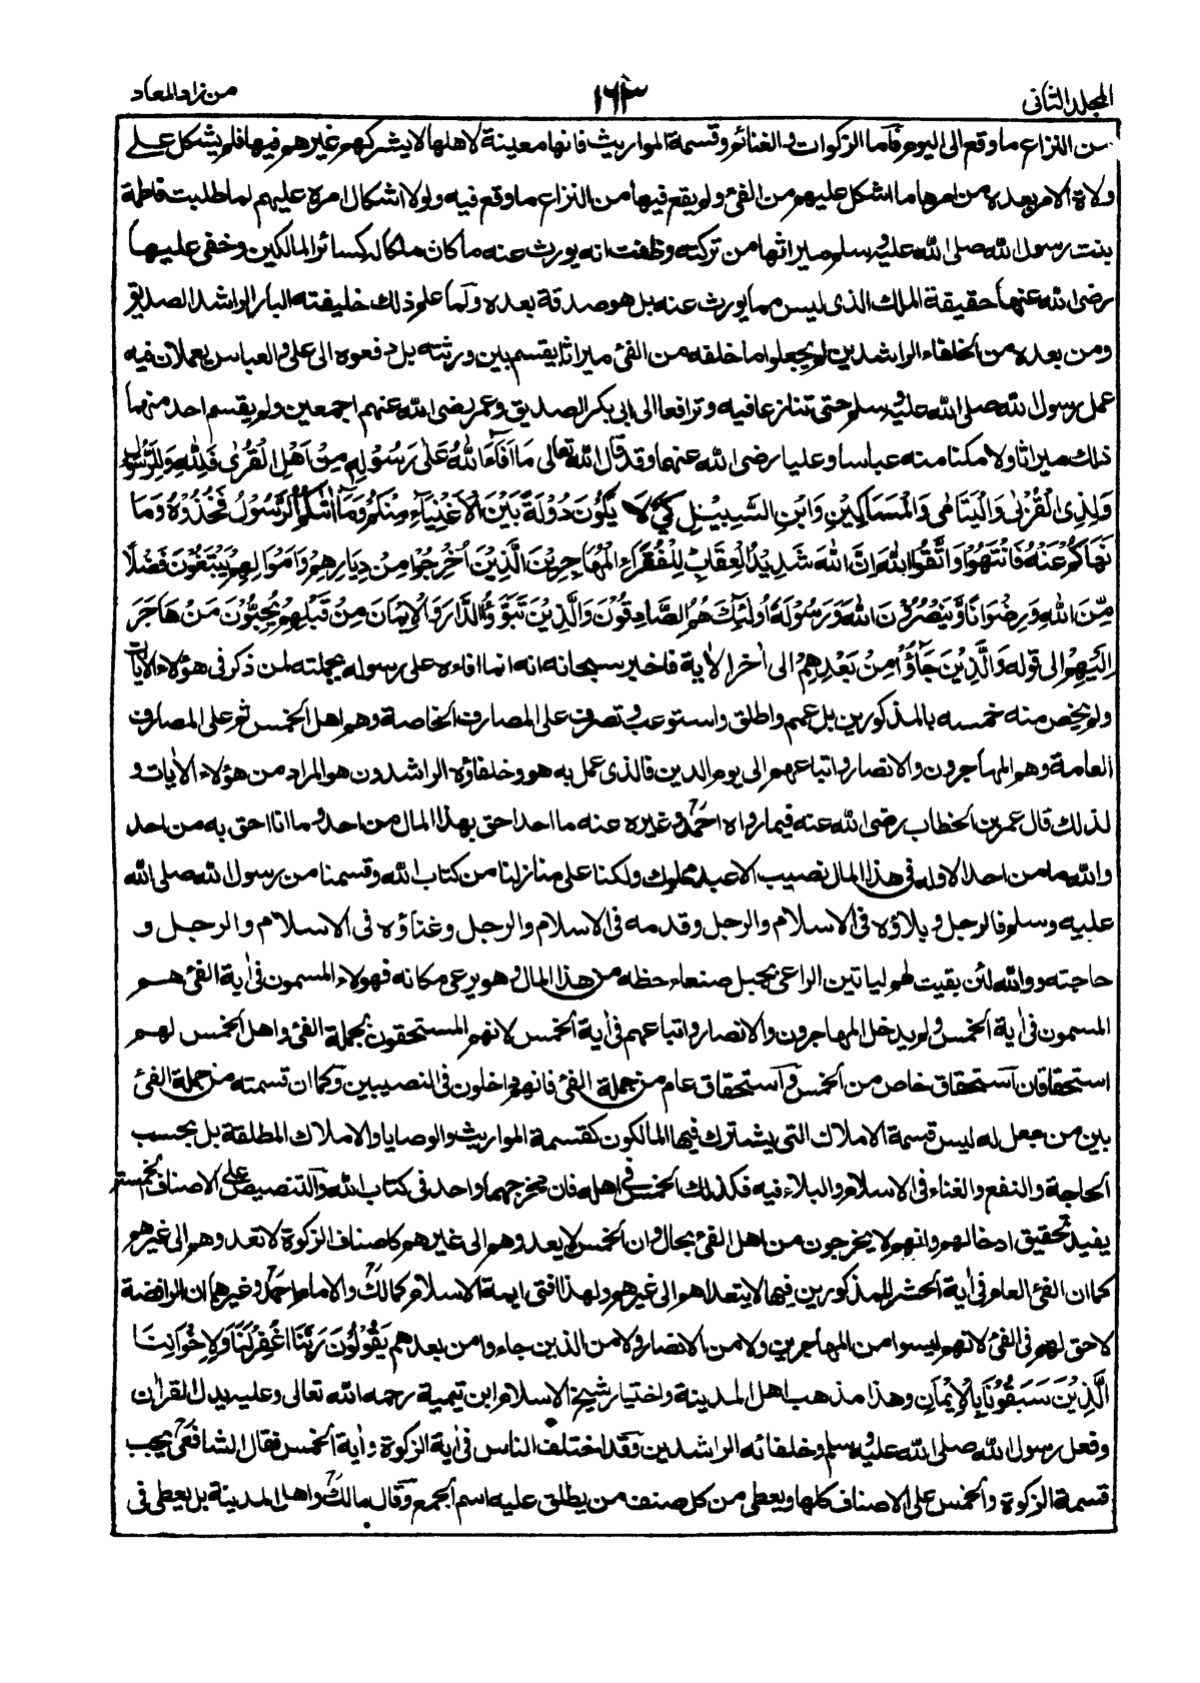 المجلد الثاني
١٦٣
من زاد المعاد
من النزاع ما وقع الى اليوم فاما الزكوات والغنائم وقسمة المواريث فانها معينة لاهلها لا يشركهم غيرهم فيها فلم يشكل على
ولاة الامر بعده من امرها ما اشكل عليهم من الفئ ولم يقع فيها من النزاع ما وقع فيه ولولا اشكال امره عليهم لما طلبت فاطمة
بنت رسول الله صلى الله عليه وسلم ميراثها من تركته وظنت انه يورث عنه ما كان ملكا له كسائر المالكين وخفى عليها
رضى الله عنها حقيقة الملك الذى ليس مما يورث عنه بل هو صدقة بعده ولما علم ذلك خليفته البار الراشد الصديق
ومن بعده من الخلفاء الراشدين لم يجعلوا ما خلفه من الفئ ميراثا يقسم بين ورثته بل دفعوه الى على والعباس يعملان فيه
عمل رسول الله صلى الله عليه وسلم حتى تنازعا فيه وترافعا الى ابى بكر الصديق وعمر رضى الله عنهم اجمعين ولم يقسم احد منهما
ذلك ميراثا ولا مكنا منه عباسا وعليا رضى الله عنهما وقد قال الله تعالى مَا اَفَاءَ اللهُ عَلٰى رَسُوْلِهٖ مِنْ اَهْلِ الْقُرٰى فَلِلّٰهِ وَلِلرَّسُوْلِ
وَلِذِى الْقُرْبٰى وَالْيَتَامٰى وَالْمَسَاكِيْنِ وَابْنِ السَّبِيْلِ كَىْ لَا يَكُوْنَ دُوْلَةً بَيْنَ الْاَغْنِيَاءِ مِنْكُمْ وَمَا اٰتٰكُمُ الرَّسُوْلُ فَخُذُوْهُ وَمَا
نَهَاكُمْ عَنْهُ فَانْتَهُوْا وَاتَّقُوا اللهَ اِنَّ اللهَ شَدِيْدُ الْعِقَابِ لِلْفُقَرَاءِ الْمُهَاجِرِيْنَ الَّذِيْنَ اُخْرِجُوْا مِنْ دِيَارِهِمْ وَاَمْوَالِهِمْ يَبْتَغُوْنَ فَضْلًا
مِّنَ اللهِ وَرِضْوَانًا وَّيَنْصُرُوْنَ اللهَ وَرَسُوْلَهٗ اُولٰٓئِكَ هُمُ الصَّادِقُوْنَ وَالَّذِيْنَ تَبَوَّؤُا الدَّارَ وَالْاِيْمَانَ مِنْ قَبْلِهِمْ يُحِبُّوْنَ مَنْ هَاجَرَ
اِلَيْهِمْ الى قوله وَالَّذِيْنَ جَاؤُا مِنْ بَعْدِهِمْ الى اٰخر الاٰية فاخبر سبحانه انه انما افاءه على رسوله بجملته لمن ذكر فى هؤلاء الاٰيات
ولم يخص منه خمسه بالمذكورين بل عمم واطلق واستوعب وتصرف على المصارف الخاصة وهم اهل الخمس ثم على المصارف
العامة وهم المهاجرون والانصار واتباعهم الى يوم الدين فالذى عمل به هو وخلفاؤه الراشدون هو المراد من هؤلاء الاٰيات و
لذلك قال عمر بن الخطاب رضى الله عنه فيما رواه احمد وغيره عنه ما احد احق بهذا المال من احد وما انا احق به من احد
والله ما من احد الا وله فى هذا المال نصيب الا عبد مملوك ولكنا على منازلنا من كتاب الله وقسمنا من رسول الله صلى الله
عليه وسلم فالرجل و بلاؤه فى الاسلام والرجل وقدمه فى الاسلام والرجل وغناؤه فى الاسلام والرجل و
حاجته ووالله لئن بقيت لهم لياتين الراعى بجبل صنعاء حظه من هذا المال وهو يرعى مكانه فهولاء المسمون فى اٰية الفئ هم
المسمون فى اٰية الخمس ولم يدخل المهاجرون والانصار واتباعهم فى اٰية الخمس لانهم المستحقون بجملة الفئ واهل الخمس لهم
استحقاقان استحقاق خاص من الخمس واستحقاق عام من جملة الفئ فانهم داخلون فى النصيبين وكما ان قسمته من جملة الفئ
بين من جعل له ليس قسمة الاملاك التى يشترك فيها المالكون كقسمة المواريث والوصايا والاملاك المطلقة بل بحسب
الحاجة والنفع والغناء فى الاسلام والبلاء فيه فكذلك الخمس فى اهله فان مخرجهما واحد فى كتاب الله والتنصيص على الاصناف الخمسة
يفيد تحقيق ادخالهم وانهم لا يخرجون من اهل الفئ بحال وان الخمس لا يعدوهم الى غيرهم كاصناف الزكوة لا تعدوهم الى غيرهم
كما ان الفئ العام فى اٰية الحشر للمذكورين فيها لا يتعداهم الى غيرهم ولهذا افتى ايمة الاسلام كمالك والامام احمد وغيرهما ان الرافضة
لا حق لهم فى الفئ لانهم ليسوا من المهاجرين ولا من الانصار ولا من الذين جاءوا من بعدهم يَقُوْلُوْنَ رَبَّنَا اغْفِرْ لَنَا وَلِاِخْوَانِنَا
الَّذِيْنَ سَبَقُوْنَا بِالْاِيْمَانِ وهذا مذهب اهل المدينة واختيار شيخ الاسلام ابن تيمية رحمه الله تعالى وعليه يدل القراٰن
وفعل رسول الله صلى الله عليه وسلم وخلفائه الراشدين وقد اختلف الناس فى اٰية الزكوة واٰية الخمس فقال الشافعى يجب
قسمة الزكوة والخمس على الاصناف كلها ويعطى من كل صنف من يطلق عليه اسم الجمع وقال مالك واهل المدينة بل يعطى فى